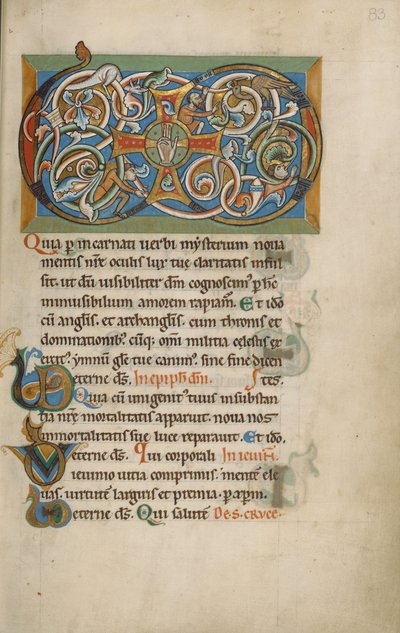 83
Quia p incarnati uerbi mysterium noua
mentis nr̄e oculis lux tue claritatis inful
sit. ut dū uisibiliter dm̄ cognoscim᷒ p hc̄
inuisibilium amorem rapiam᷒. Et ido
cū anglis. et archanglis. cum thronis et
dominationib᷒. cūq; om̄i militia celestis ex
ercit᷒. ymnum gl̄e tue canim᷒. sine fine dicen
eterne dś. In epiph dn̄i. Stes.
Quia cū unigenit᷒ tuus in substan
tia nr̄e mortalitatis apparuit. noua nos
immortalitatis sue luce reparauit. Et ido.
eterne dś. Qui corporali In ieiun̄.
ieiunio uitia comprimis. mentē ele
uas. uirtutē largiris et premia. p
eterne dś. Qui salutē De. S. Cruce.